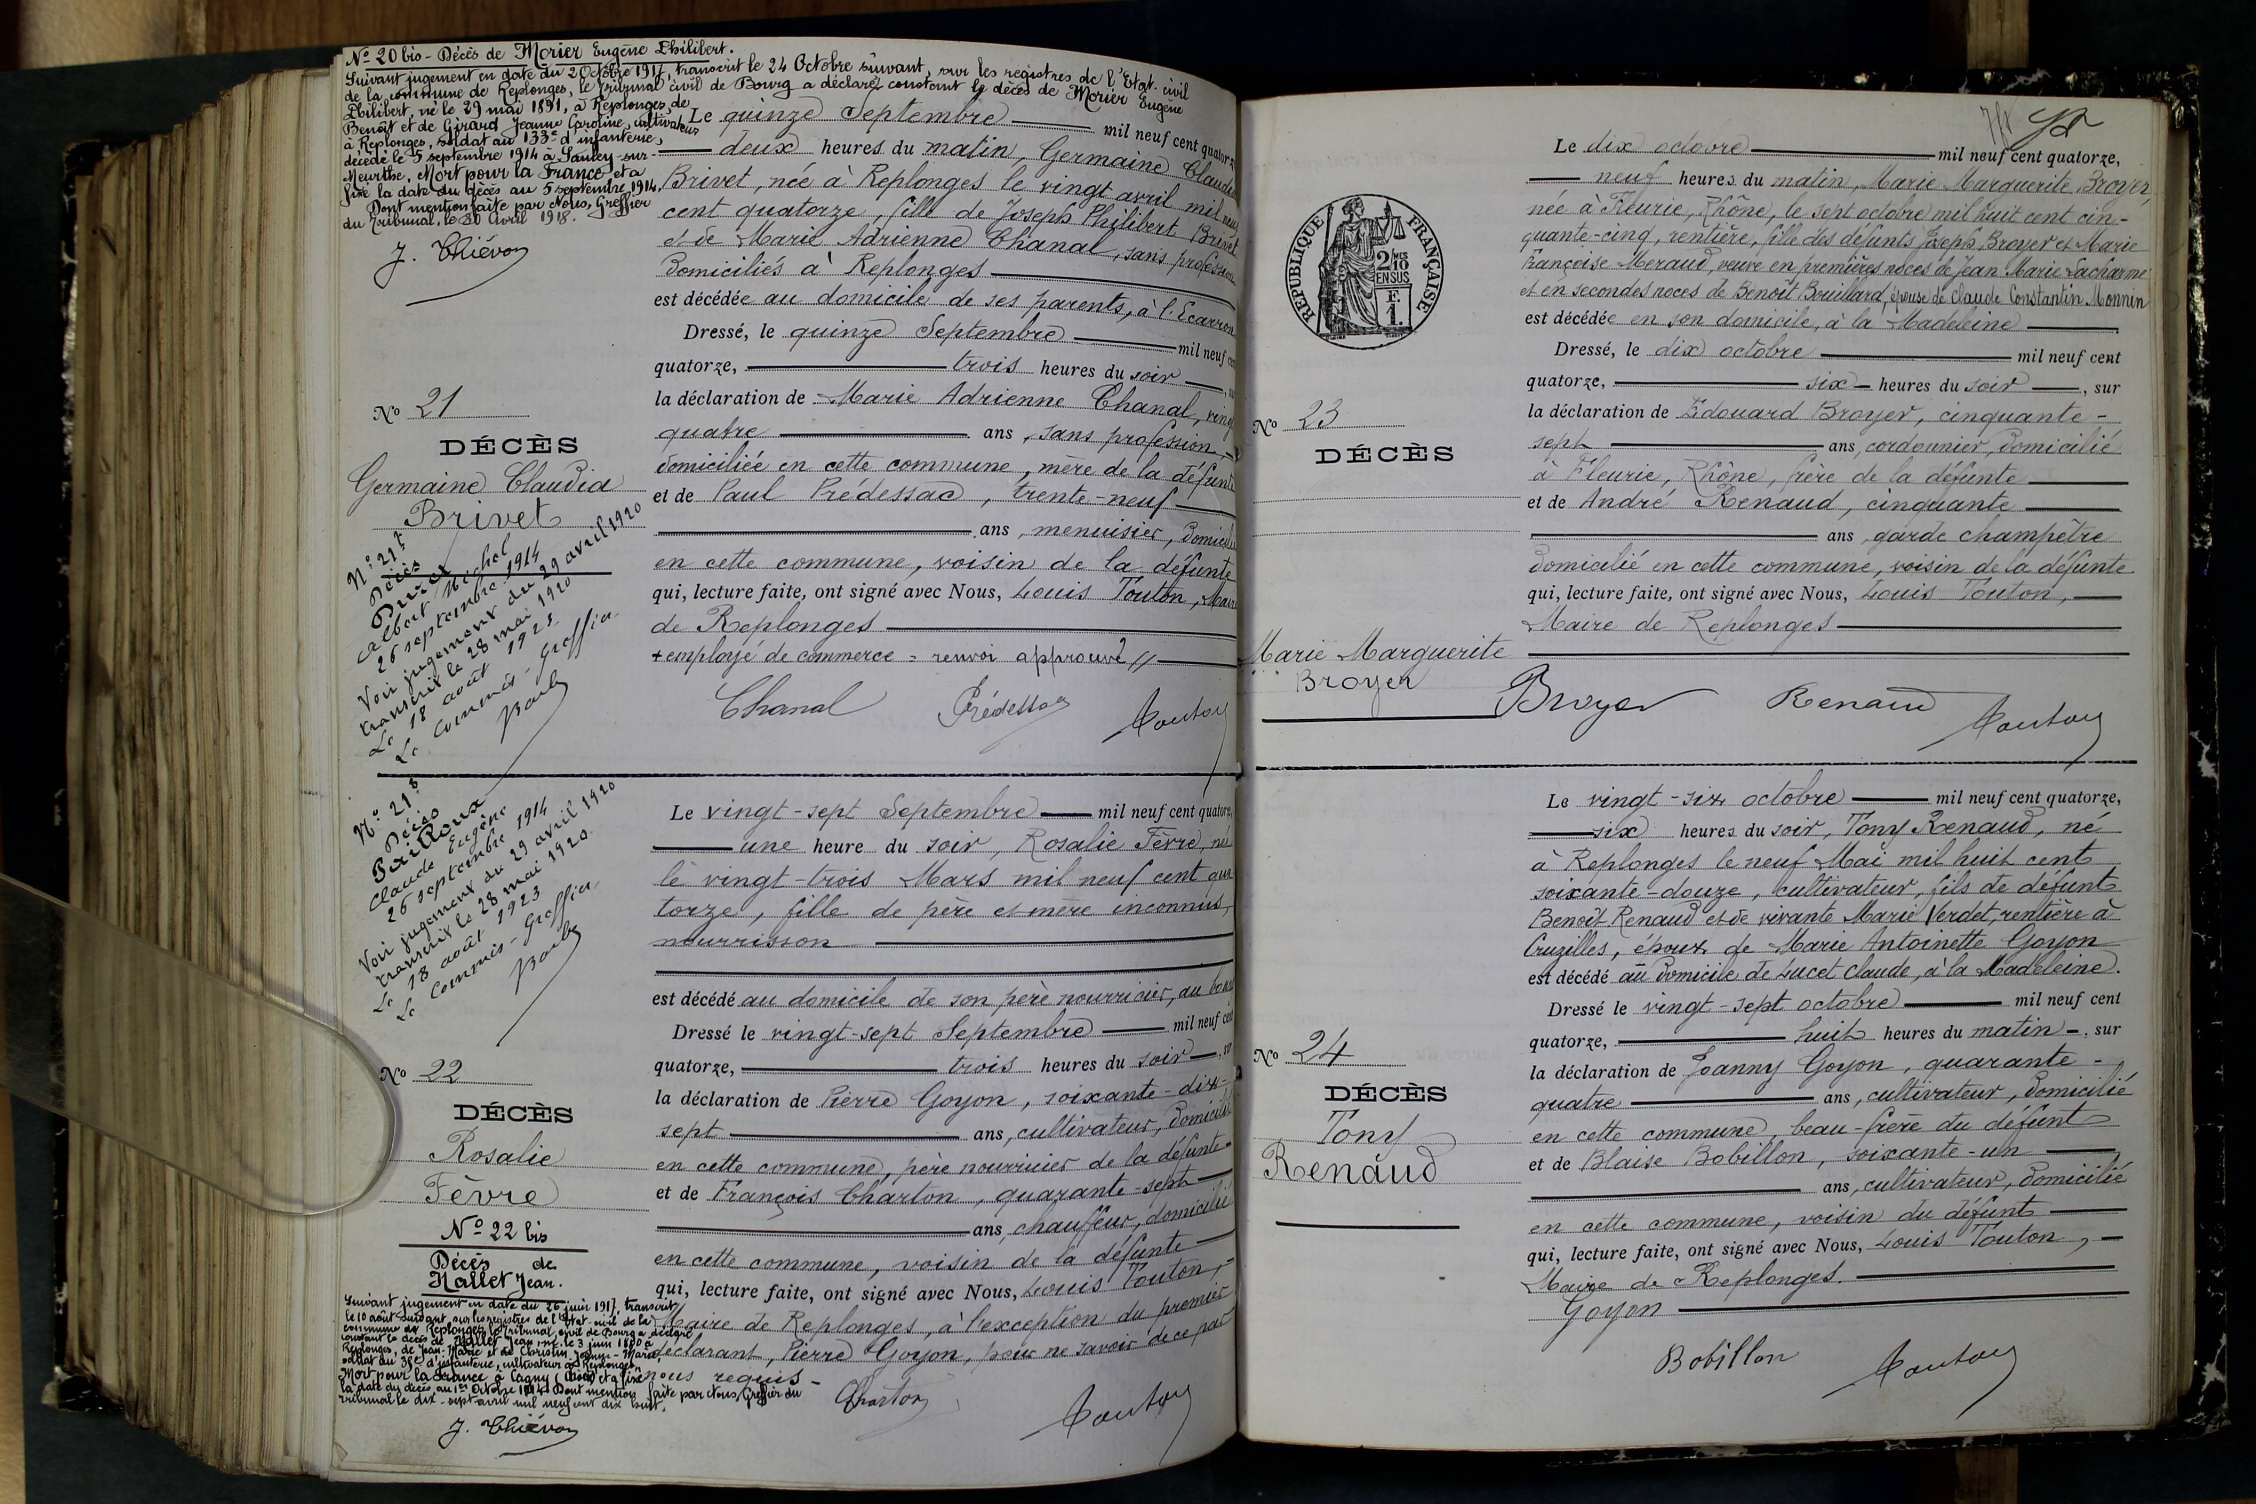 Nº 20 bis - Décès de Morier Eugène Philibert.
Suivant jugement en date du 2 Octobre 1917, transcrit le 24 Octobre suivant, sur les registres de l'Etat-civil
de la commune de Replonges, le Tribunal civil de Bourg a déclaré constant le décès de Morier Eugène
Philibert, né le 29 mai 1891, à Replonges, de
Benoît et de Girard Jeanne Caroline, cultivateur
à Replonges, soldat au 133e d'infanterie,
décédé le 5 septembre 1914 à Saulcy-sur-
Meurthe, Mort pour la France et a
fixé la date du décès au 5 septembre 1914.
Dont mention faite par Nous, Greffier
du Tribunal, le 30 Avril 1918.
J. Thiévon
Nº 21
DÉCÈS
Germaine Claudia
Brivet
Le quinze Septembre mil neuf cent quatorze
deux heures du matin, Germaine Claudia
Brivet, née à Replonges le vingt avril mil neuf
cent quatorze, fille de Joseph Philibert Brivet
et de Marie Adrienne Chanal, sans profession
domiciliés à Replonges
est décédée au domicile de ses parents, à l'Ecarron
Dressé, le quinze Septembre mil neuf cent
quatorze, trois heures du soir, sur
la déclaration de Marie Adrienne Chanal, vingt
quatre ans, sans profession,
domiciliée en cette commune, mère de la défunte
et de Paul Prédessac, trente-neuf
ans, menuisier, domicilié
en cette commune, voisin de la défunte
qui, lecture faite, ont signé avec Nous, Louis Touton, Maire
de Replonges
+ employé de commerce = renvoi approuvé //
Chanal Prédessac Touton
Nº 21
Décès
Albert Michel
26 septembre 1914
Voir jugement du 29 avril 1920
transcrit le 28 mai 1920
Le 18 août 1923.
Le Commis-Greffier
Nº 21
Décès
Pailloux
Claude Eugène
26 septembre 1914
Voir jugement du 29 avril 1920
transcrit le 28 mai 1920.
Le 18 août 1923
Le Commis-Greffier
Nº 22
DÉCÈS
Rosalie
Fèvre
Le vingt-sept Septembre mil neuf cent quatorze,
une heure du soir, Rosalie Fèvre, née
le vingt-trois Mars mil neuf cent qua
torze, fille de père et mère inconnus,
nourrisson
est décédé au domicile de son père nourricier, au bourg
Dressé le vingt-sept Septembre mil neuf cent
quatorze, trois heures du soir, sur
la déclaration de Pierre Goyon, soixante-dix-
sept ans, cultivateur, domicilié
en cette commune, père nourricier de la défunte
et de François Charton, quarante-sept
ans, chauffeur, domicilié
en cette commune, voisin de la défunte
qui, lecture faite, ont signé avec Nous, Louis Touton,
Maire de Replonges, à l'exception du premier
déclarant, Pierre Goyon, pour ne savoir de ce par
nous requis
Charton Touton
Nº 22 bis
Décès de
Nallet Jean.
Suivant jugement en date du 26 juin 1917, transcrit
le 10 août suivant, sur les registres de l'Etat-civil de la
commune de Replonges, le Tribunal civil de Bourg a déclaré
constant le décès de Nallet Jean, né le 3 juin 1880 à
Replonges, de Jean-Marie et de Christin Jeanne-Marie,
soldat au d'infanterie, cultivateur à Replonges,
Mort pour la France à Cagny et a fixé
la date du décès au 1er Octobre 1914. Dont mention faite par Nous, Greffier du
Tribunal le dix-sept avril mil neuf cent dix huit.
J. Thiévon
RÉPUBLIQUE FRANÇAISE
2 MES
10
EN SUS
F.
1
Nº 23
DÉCÈS
Marie Marguerite
Broyer
Le dix octobre mil neuf cent quatorze,
neuf heures du matin, Marie Marguerite Broyer,
née à Fleurie, Rhône, le sept octobre mil huit cent cin-
quante-cinq, rentière, fille des défunts Joseph Broyer et Marie
Françoise Meraud, veuve en premières noces de Jean Marie Lacharme
et en secondes noces de Benoît Bouillard, épouse de Claude Constantin Monnin
est décédée en son domicile, à la Madeleine
Dressé, le dix octobre mil neuf cent
quatorze, six heures du soir, sur
la déclaration de Edouard Broyer, cinquante-
sept ans, cordonnier, domicilié
à Fleurie, Rhône, frère de la défunte
et de André Renaud, cinquante
ans, garde champêtre
domicilié en cette commune, voisin de la défunte
qui, lecture faite, ont signé avec Nous, Louis Touton,
Maire de Replonges
Broyer Renaud Touton
Nº 24
DÉCÈS
Tony
Renaud
Le vingt-six octobre mil neuf cent quatorze,
six heures du soir, Tony Renaud, né
à Replonges le neuf Mai mil huit cent
soixante-douze, cultivateur, fils de défunt
Benoît Renaud et de vivante Marie Verdet, rentière à
Cruzilles, époux de Marie Antoinette Goyon
est décédé au domicile de Lucet Claude, à la Madeleine.
Dressé le vingt-sept octobre mil neuf cent
quatorze, huit heures du matin, sur
la déclaration de Joanny Goyon, quarante-
quatre ans, cultivateur, domicilié
en cette commune, beau-frère du défunt
et de Blaise Bobillon, soixante-un
ans, cultivateur, domicilié
en cette commune, voisin du défunt
qui, lecture faite, ont signé avec Nous, Louis Touton,
Maire de Replonges.
Goyon
Bobillon Touton